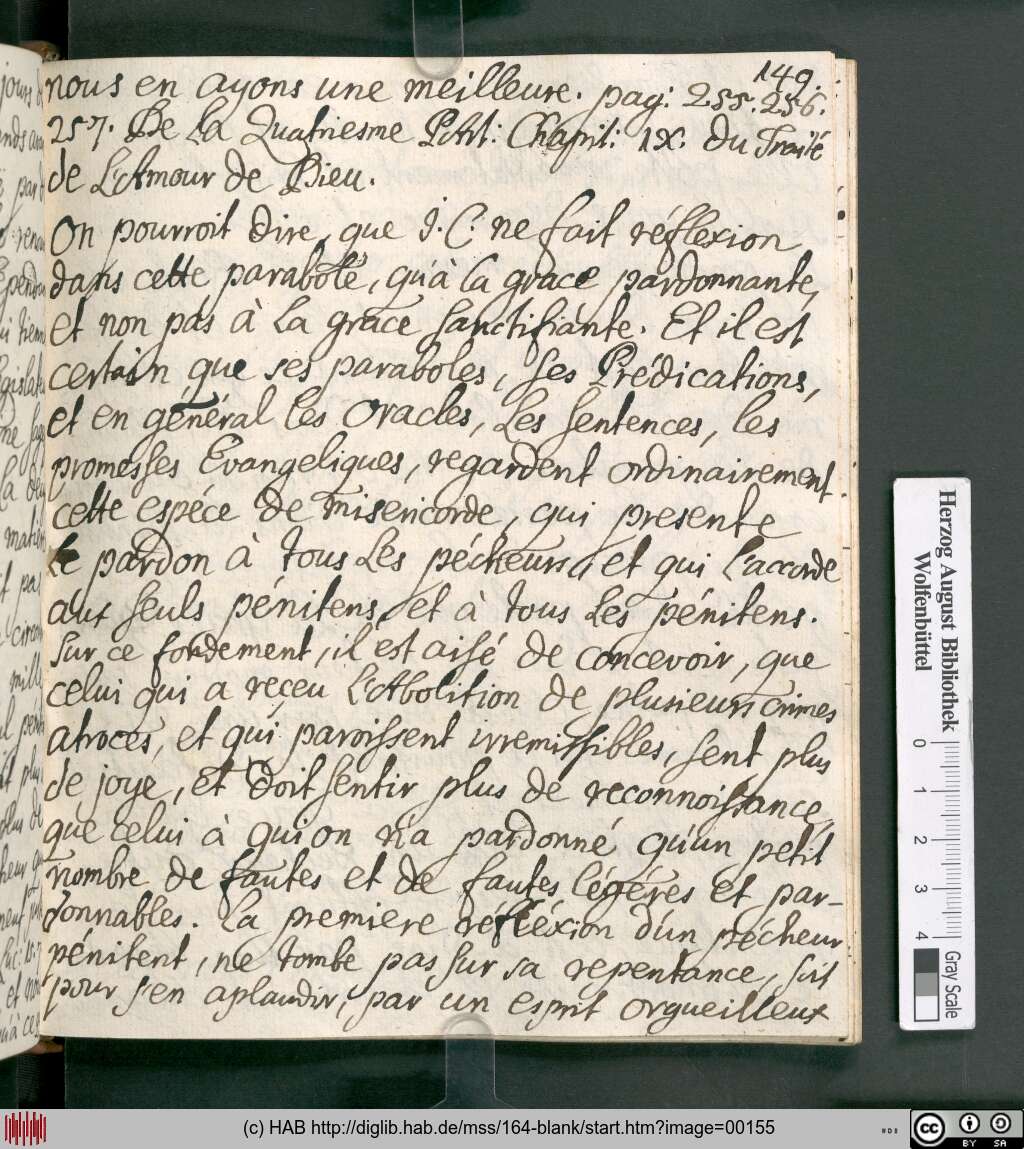 149.
nous en ayons une meilleure. pag: 255. 256.
257. De La Quatriesme Part: Chapit: IX. du Traité
de L'Amour de Dieu.
On pourroit dire, que J. C. ne fait réflexion
dans cette parabole, qu'à la grace pardonnante,
et non pas à La grace sanctifiante. Et il est
certain que ses paraboles, ses Prédications,
et en général les Oracles, Les sentences, les
promesses Evangeliques, regardent ordinairement
cette espéce de misericorde, qui presente
Le pardon à tous Les pécheurs, et qui l'accorde
aux seuls pénitens, et à tous Les pénitens.
Sur ce fondement, il est aisé de concevoir, que
celui qui a reçeu L'Abolition de plusieurs crimes
atroces, et qui paroissent irremissibles, sent plus
de joye, et doit sentir plus de reconnoissance,
que celui à qui on n'a pardonné qu'un petit
nombre de fautes et de fautes légéres et par-
donnables. La premiere réfléxion d'un pécheur
pénitent, ne tombe pas sur sa repentance, soit
pour s'en aplaudir, par un esprit orgueilleux
Herzog August Bibliothek
Wolfenbüttel
0 1 2 3 4
Gray Scale
(c) HAB http://diglib.hab.de/mss/164-blank/start.htm?image=00155
cc BY SA